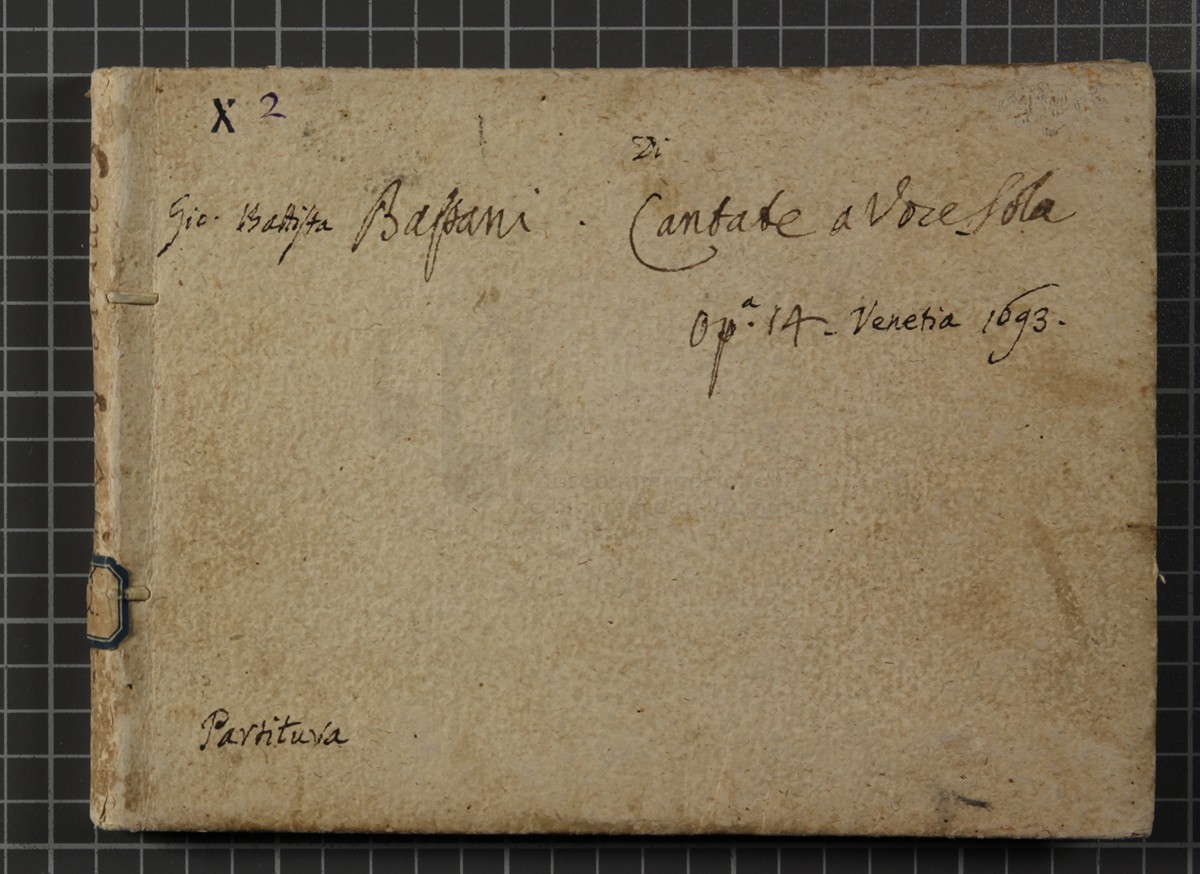 X 2
Di
Gio. Battista Bassani. Cantate a Voce Sola
Op.ª 14. Venetia 1693.
Partitura